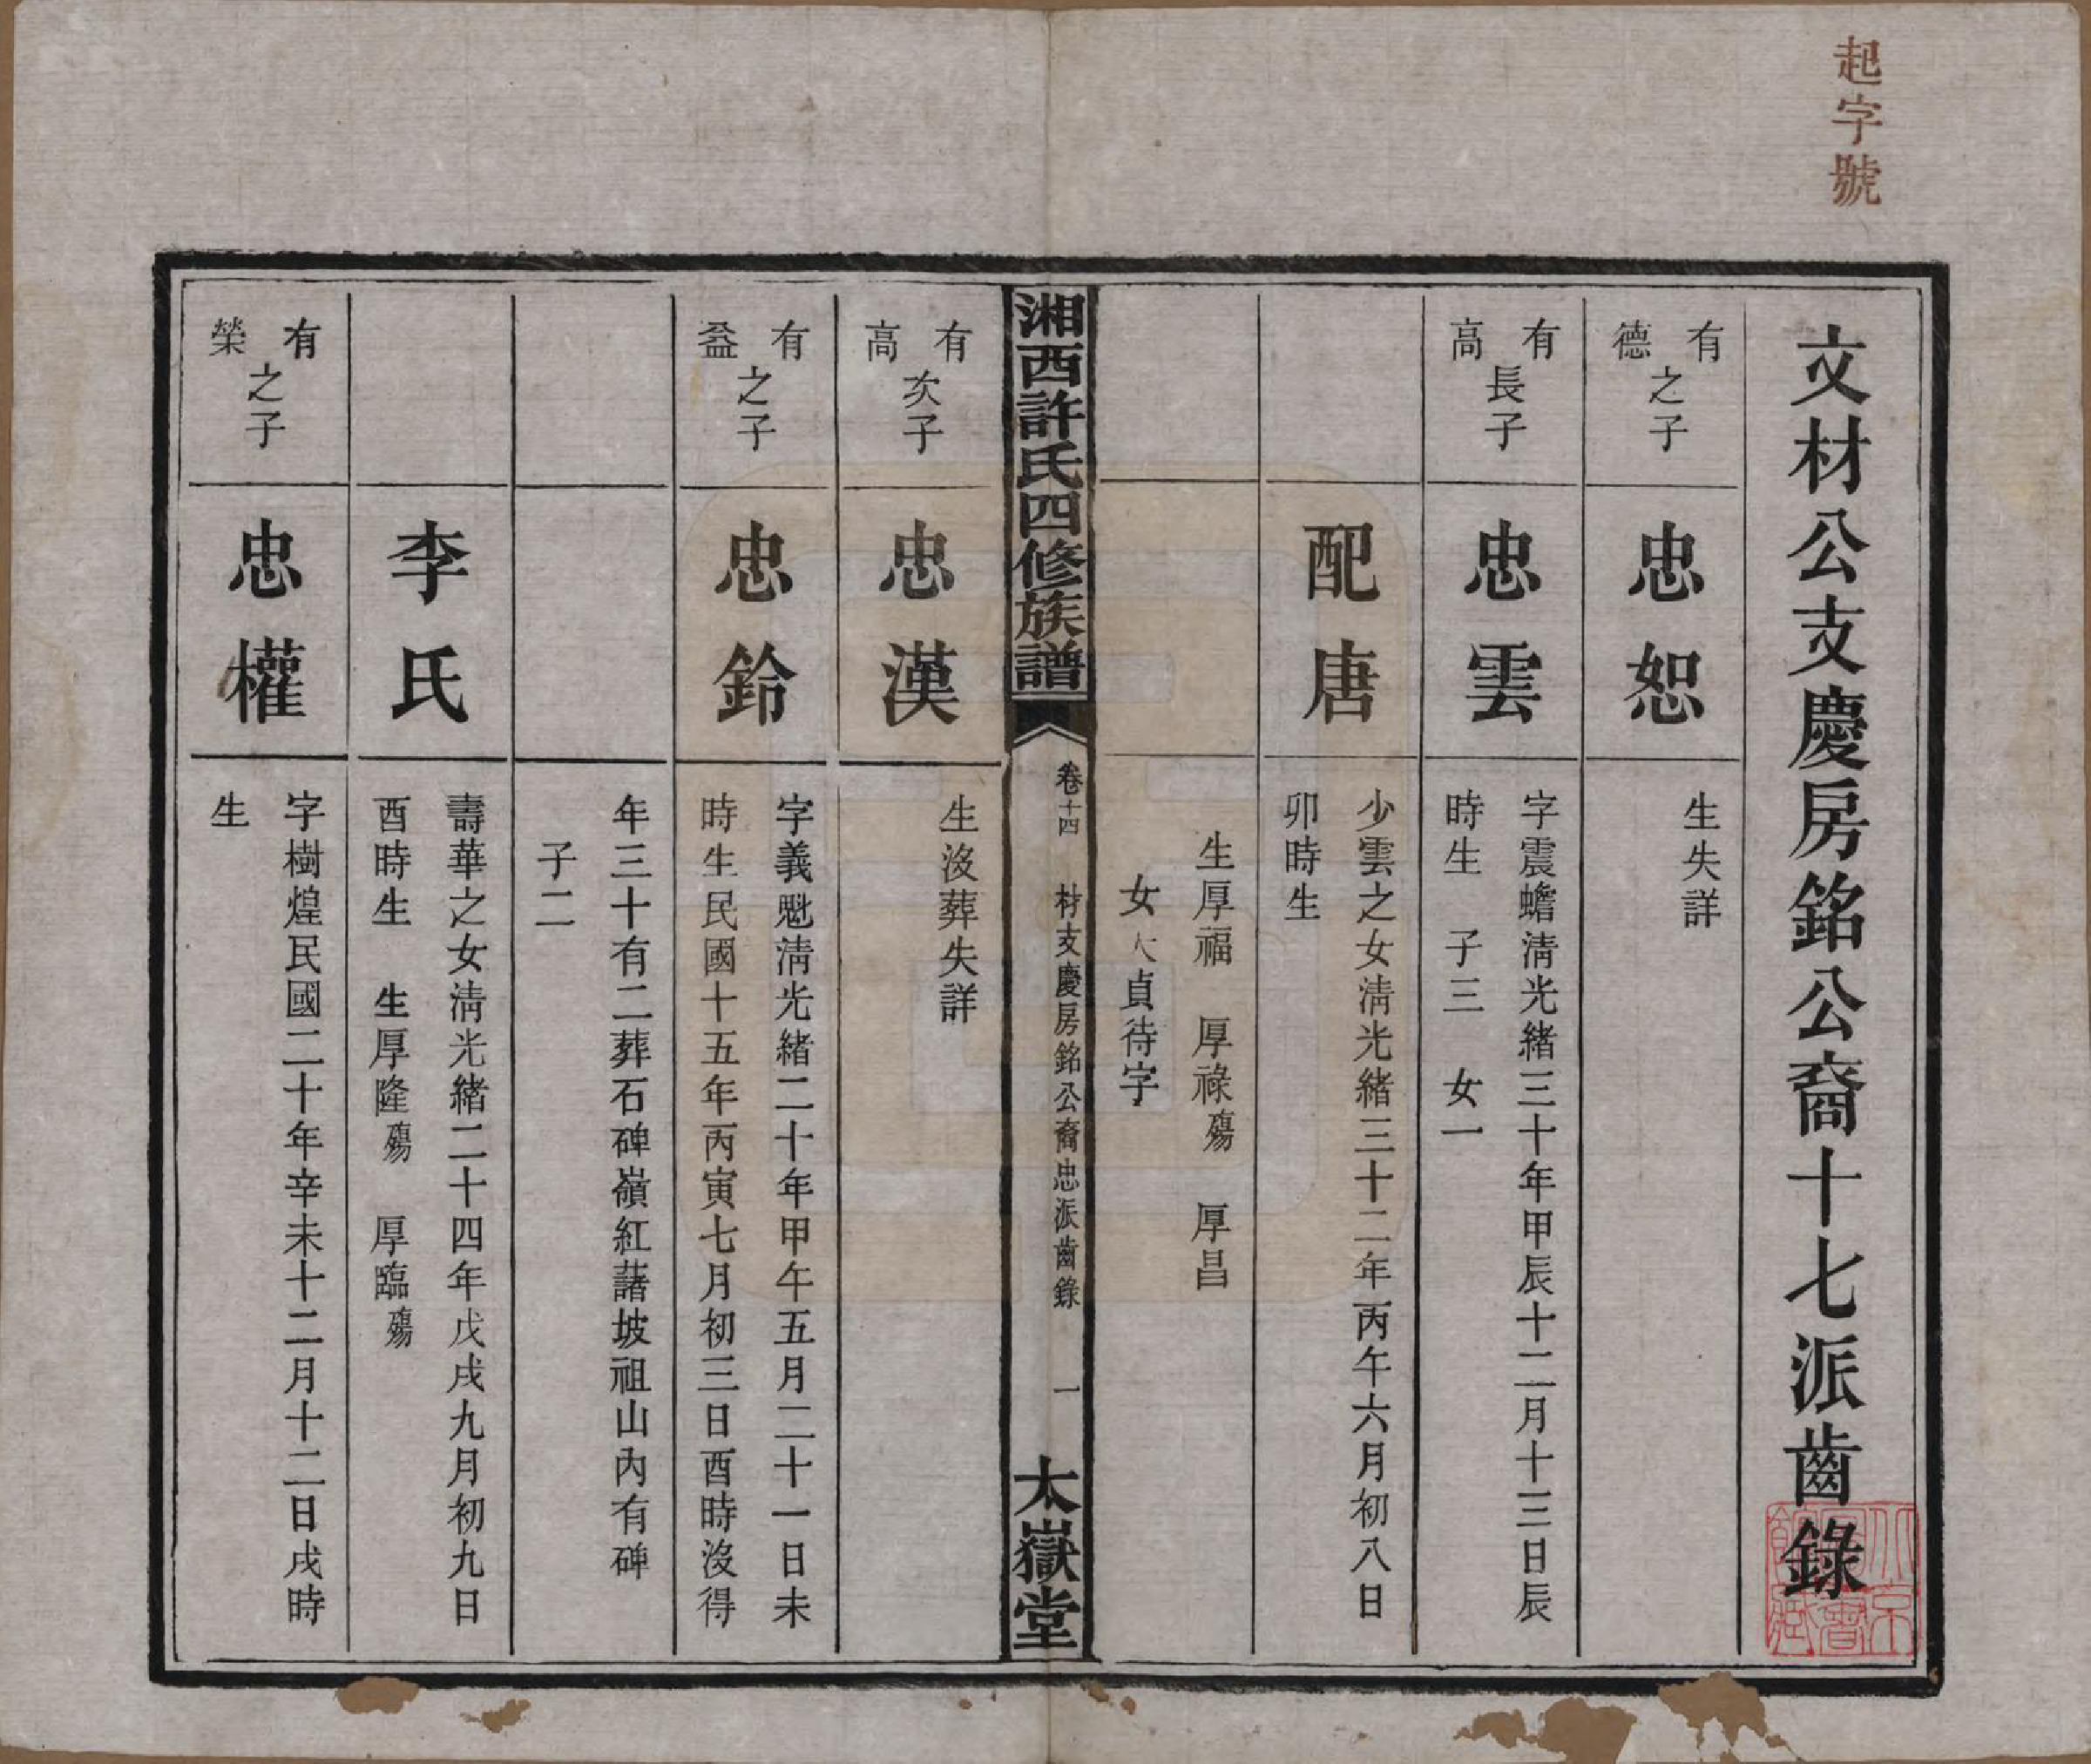 起字號
文材公支慶房銘公裔十七派齒錄
有德之子
忠恕
生失詳
有高長子
忠雲
字震蟾淸光緒三十年甲辰十二月十三日辰
時生 子三 女一
配唐
少雲之女淸光緒三十二年丙午六月初八日
卯時生
生厚福 厚祿殤 厚昌
女大貞待字
湘西許氏四修族譜
卷十四 材支慶房銘公裔忠派齒錄 一
太嶽堂
有高次子
忠漢
生沒葬失詳
有益之子
忠鈴
字義魁淸光緒二十年甲午五月二十一日未
時生民國十五年丙寅七月初三日酉時沒得
年三十有二葬石碑嶺紅藷坡祖山內有碑
子二
李氏
壽華之女淸光緒二十四年戊戌九月初九日
酉時生 生厚隆殤 厚臨殤
有榮之子
忠權
字樹煌民國二十年辛未十二月十二日戌時
生